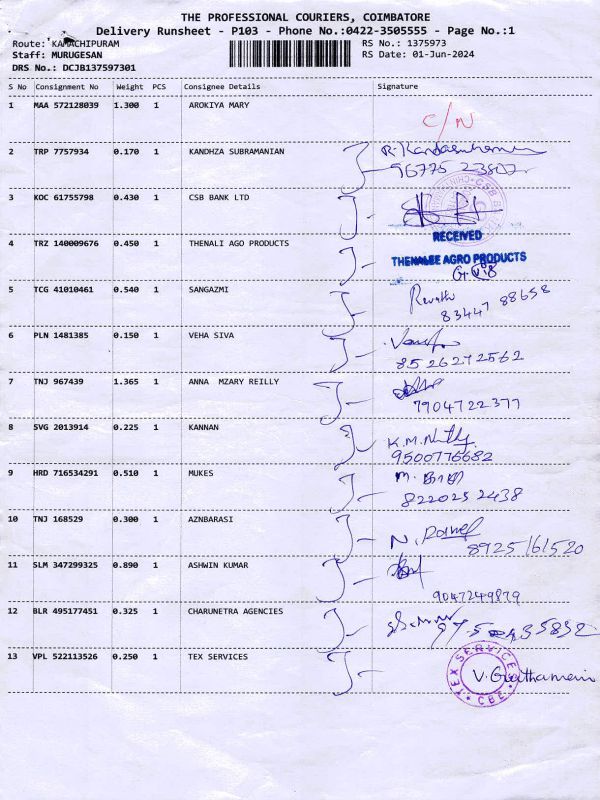 THE PROFESSIONAL COURIERS, COIMBATORE
Delivery Runsheet - P103 - Phone No.:0422-3505555 - Page No.:1
Route: KAMACHIPURAM RS No.: 1375973
Staff: MURUGESAN RS Date: 01-Jun-2024
DRS No.: DCJB137597301
S No Consignment No Weight PCS Consignee Details Signature
1 MAA 572128039 1.300 1 AROKIYA MARY C/N
2 TRP 7757934 0.170 1 KANDHZA SUBRAMANIAN
3 KOC 61755798 0.430 1 CSB BANK LTD
RECEIVED
4 TRZ 140009676 0.450 1 THENALI AGO PRODUCTS THENALEE AGRO PRODUCTS
5 TCG 41010461 0.540 1 SANGAZMI Revathi
83447 88658
6 PLN 1481385 0.150 1 VEHA SIVA
8526272562
7 TNJ 967439 1.365 1 ANNA MZARY REILLY
7904722377
8 SVG 2013914 0.225 1 KANNAN
9500776682
9 HRD 716534291 0.510 1 MUKES
822025 2438
10 TNJ 168529 0.300 1 AZNBARASI
8925161520
11 SLM 347299325 0.890 1 ASHWIN KUMAR
9047249879
12 BLR 495177451 0.325 1 CHARUNETRA AGENCIES
13 VPL 522113526 0.250 1 TEX SERVICES TEX SERVICE CBE